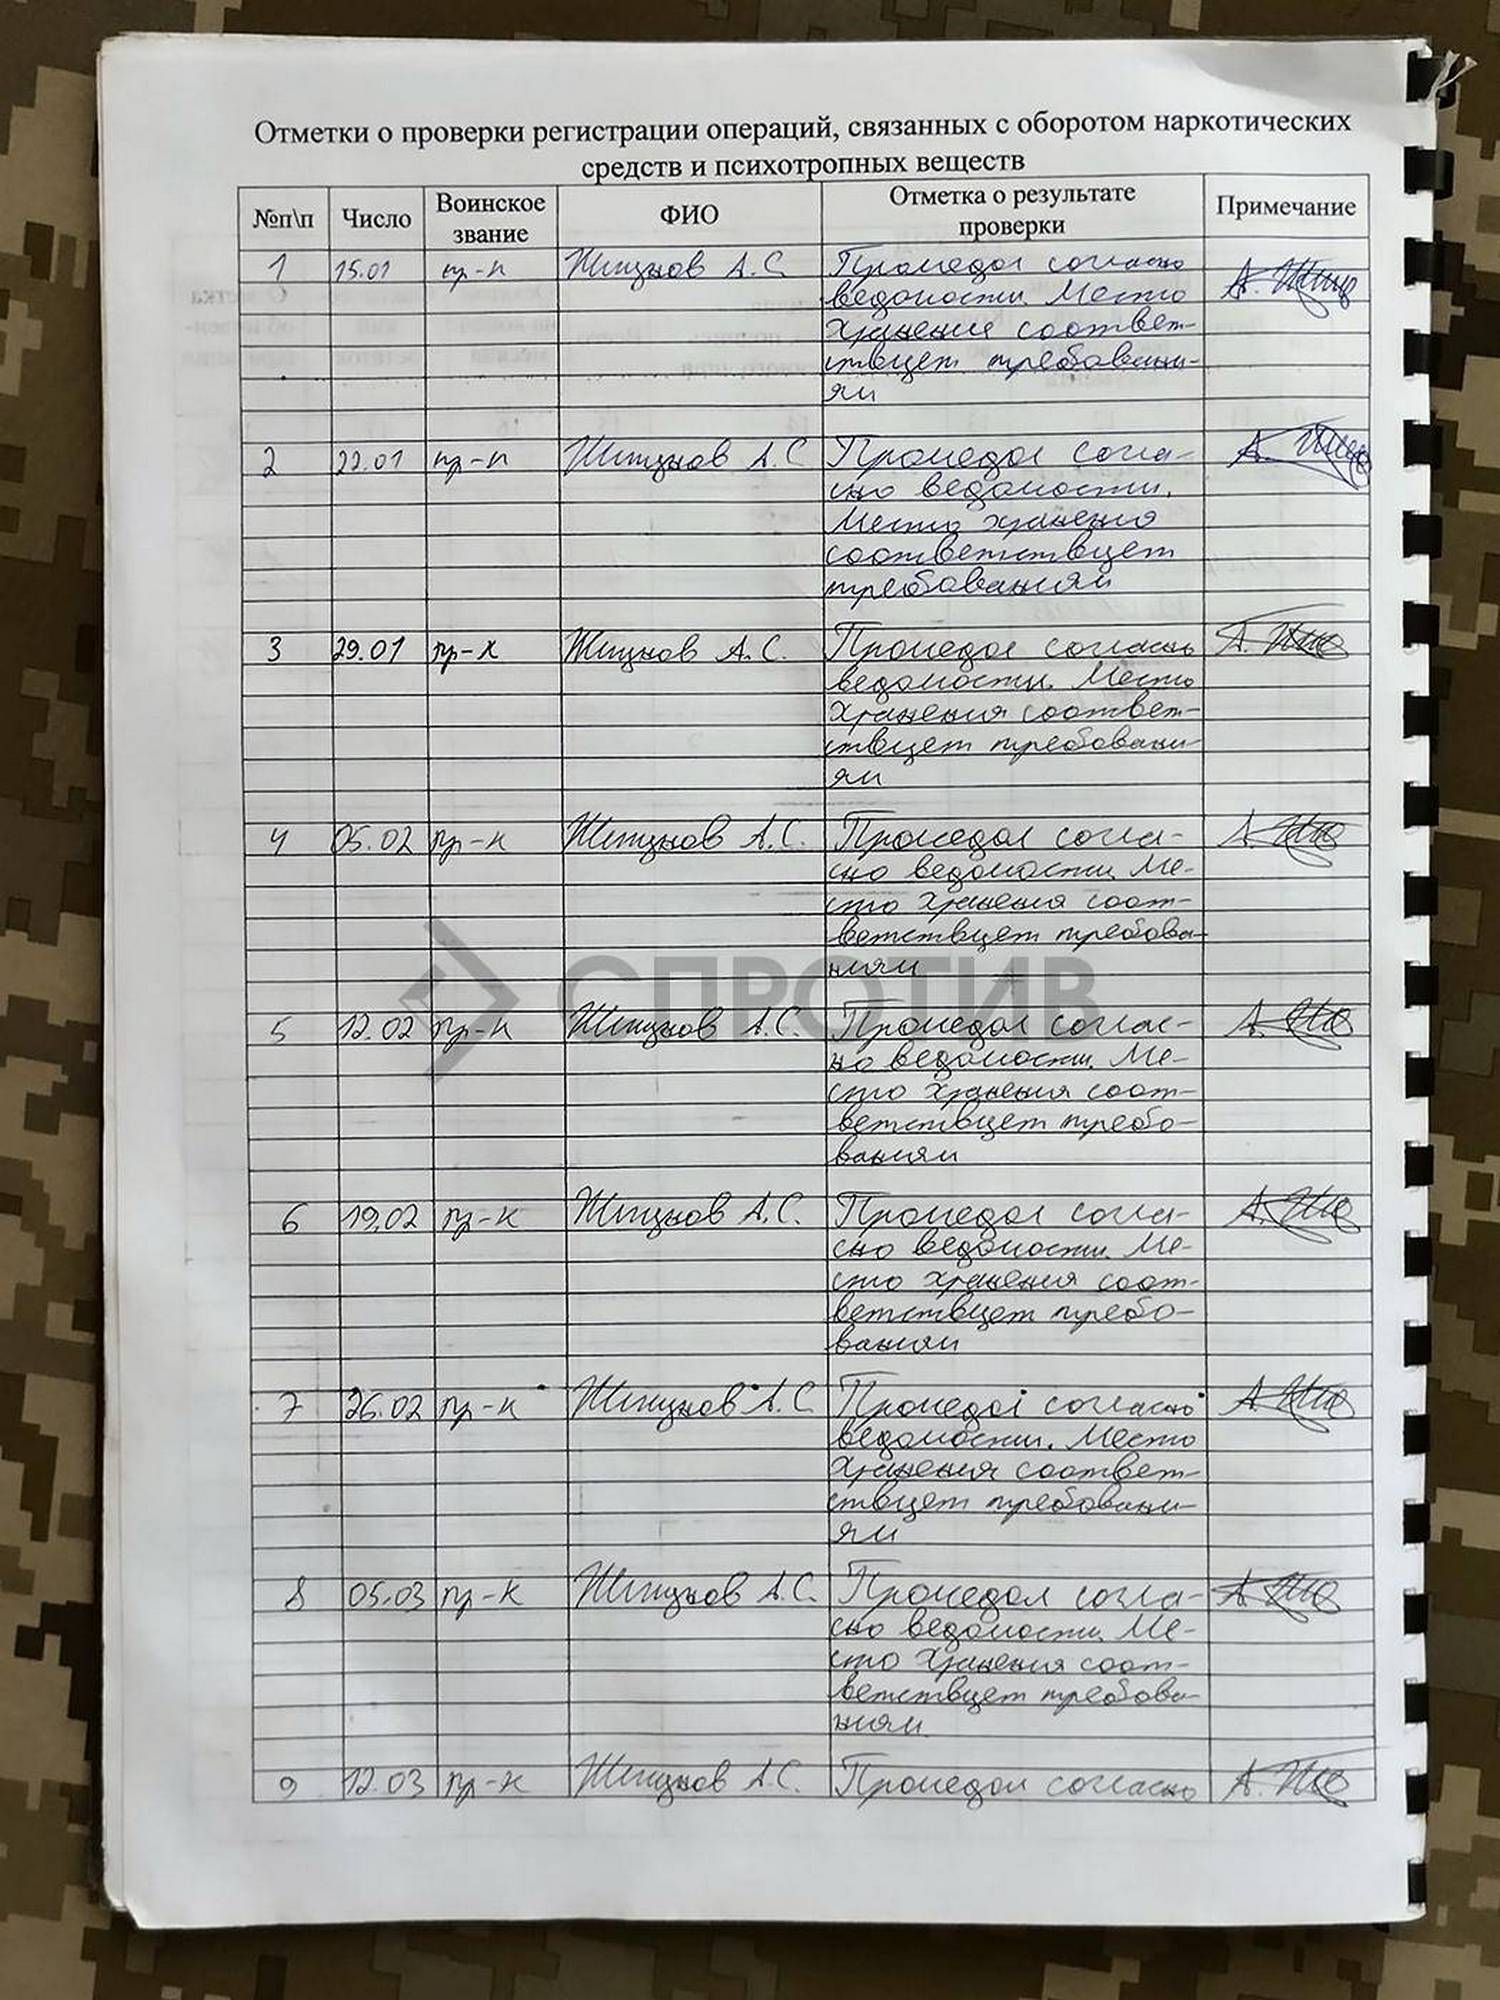 Отметки о проверки регистрации операций, связанных с оборотом наркотических
средств и психотропных веществ
№п\п Число Воинское звание ФИО Отметка о результате проверки Примечание
1 15.01 пр-к А.С. Промедол согласно
ведомости. Место
хранения соответ-
ствует требовани-
ям
2 22.01 пр-к А.С. Промедол согла-
сно ведомости.
Место хранения
соответствует
требованиям
3 29.01 пр-к А.С. Промедол согласно
ведомости. Место
хранения соответ-
ствует требовани-
ям
4 05.02 пр-к А.С. Промедол согла-
сно ведомости. Ме-
сто хранения соот-
ветствует требова-
ниям
СПРОТИВ
5 12.02 пр-к А.С. Промедол соглас-
но ведомости. Ме-
сто хранения соот-
ветствует требо-
ваниям
6 19.02 пр-к А.С. Промедол согла-
сно ведомости. Ме-
сто хранения соот-
ветствует требо-
ваниям
7 26.02 пр-к А.С. Промедол согласно
ведомости. Место
хранения соответ-
ствует требовани-
ям
8 05.03 пр-к А.С. Промедол согла-
сно ведомости. Ме-
сто хранения соот-
ветствует требова-
ниям
9 12.03 пр-к А.С. Промедол согласно